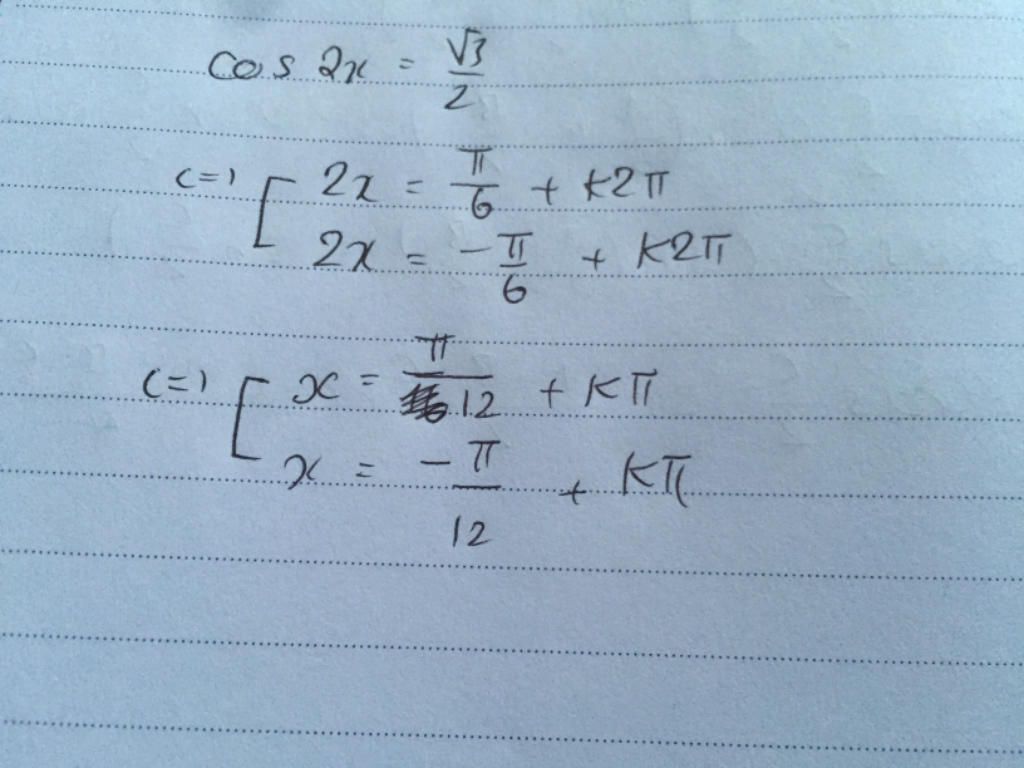 cos 2x = √3/2
<=> [ 2x = π/6 + k2π
2x = -π/6 + k2π
<=> [ x = π/12 + kπ
x = -π/12 + kπ